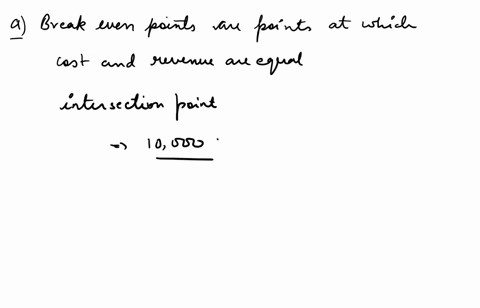 a) Break even points are points at which
cost and revenue are equal
intersection point
→ 10,000